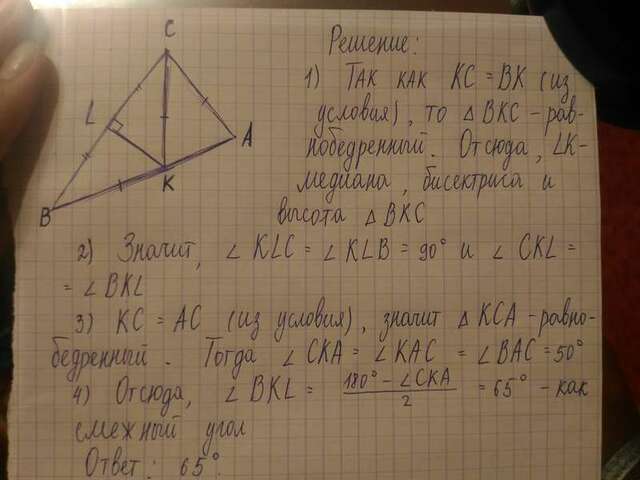 C
L
A
K
B
Решение:
1) Так как KC = BK (из
условия), то △BKC – рав-
нобедренный. Отсюда, LK-
медиана, бисектриса и
высота △BKC
2) Значит, ∠KLC = ∠KLB = 90° и ∠CKL =
= ∠BKL
3) KC = AC (из условия), значит △KCA – равно-
бедренный. Тогда ∠CKA = ∠KAC = ∠BAC = 50°
4) Отсюда, ∠BKL = (180° – ∠CKA)/2 = 65° – как
смежный угол
Ответ: 65°.